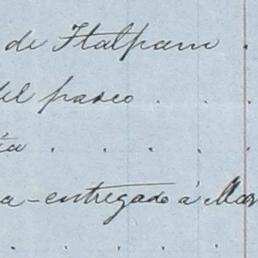 de Ttalpam .
del paseo . . .
ía . . . . .
a - entregado á Mar
. . . .